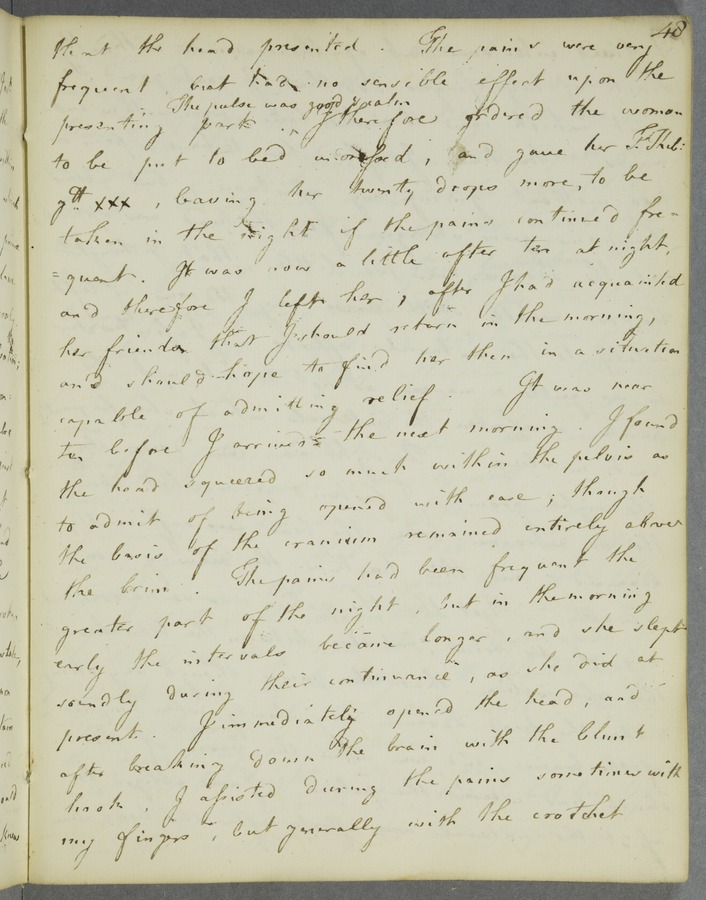 48
that the head presented. The pains were very
frequent, but had no sensible effect upon the
The pulse was good & calm
presenting part. I therefore ordered the woman
to be put to bed undressed, and gave her T. Theb:
gtt xxx, leaving her twenty drops more, to be
taken in the night if the pains continued fre=
=quent. It was now a little after ten at night,
and therefore I left her, after I had acquainted
her friends that I should return in the morning,
and should hope to find her then in a situation
capable of admitting relief. It was near
ten before I arrived the next morning. I found
the head squeezed so much within the pelvis as
to admit of being opened with ease; though
the basis of the cranium remained entirely above
the brim. The pains had been frequent the
greater part of the night, but in the morning
early the intervals became longer, and she slept
soundly during their continuance, as she did at
present. I immediately opened the head, and
after breaking down the brain with the blunt
hook, I assisted during the pains sometimes with
my fingers, but generally with the crotchet